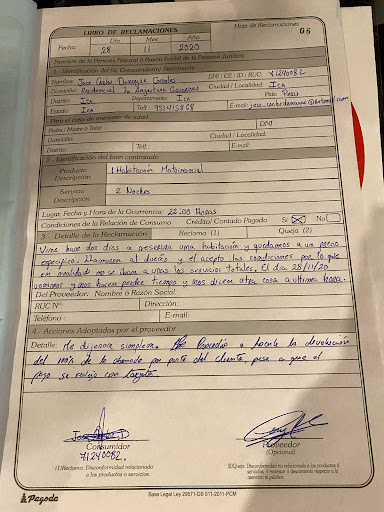 LIBRO DE RECLAMACIONES
Hoja de Reclamaciones
06
Fecha:
Día Mes Año
28 11 2020
Nombre de la Persona Natural ó Razón Social de la Persona Jurídica
1.- Identificación del (a) Consumidor(a) Reclamante
Nombre: Jose Carlos Donayre Canales
DNI / CE / ID / RUC: 71240082
Domicilio: Residencial La Angostura
Ciudad / Localidad: Ica
Distrito: Ica
Departamento: Ica
País: Perú
Estado: Ica
Telf.: 931415868
E-mail:
Para el caso de menores de edad
Padre / Madre o Tutor
DNI
Domicilio:
Ciudad / Localidad:
Distrito:
Telf.:
E-mail:
2.- Identificación del bien contratado
Producto
Descripción
1 Habitacion Matrimonial
Servicio
Descripción
2 Noches
Lugar, Fecha y Hora de la Ocurrencia: 22:00 Horas
Condiciones de la Relación de Consumo Crédito/ Contado Pagado Si X No
3.- Detalle de la Reclamación Reclama (1) Queja (2)
Vine hace dos dias a reservar una habitación y quedamos a un precio
especifico. Llamaron al dueño y el acepto las condiciones por lo que
en realidad no se iban a usar los servicios totales. El dia 28/11/20
venimos y nos hacen perder tiempo y nos dicen otra cosa a ultima hora.
Del Proveedor: Nombre ó Razón Social
RUC Nº:
Dirección:
Teléfono :
E-mail:
4.- Acciones Adoptadas por el proveedor
Detalle: Me dijeron simplemente Procedio a hacerle la devolución
del 100% de lo abonado por parte del cliente, pese a que el
pago se realizo con tarjeta.
Consumidor
71240082.
Proveedor
(Opcional)
(1)Reclamo: Disconformidad relacionada
a los productos o servicios.
(2)Queja: Disconformidad no relacionada a los productos ó
servicios; ó malestar ó descontento respecto a la
atención al público.
Pagoda
Base Legal Ley 29571-DS 011-2011-PCM